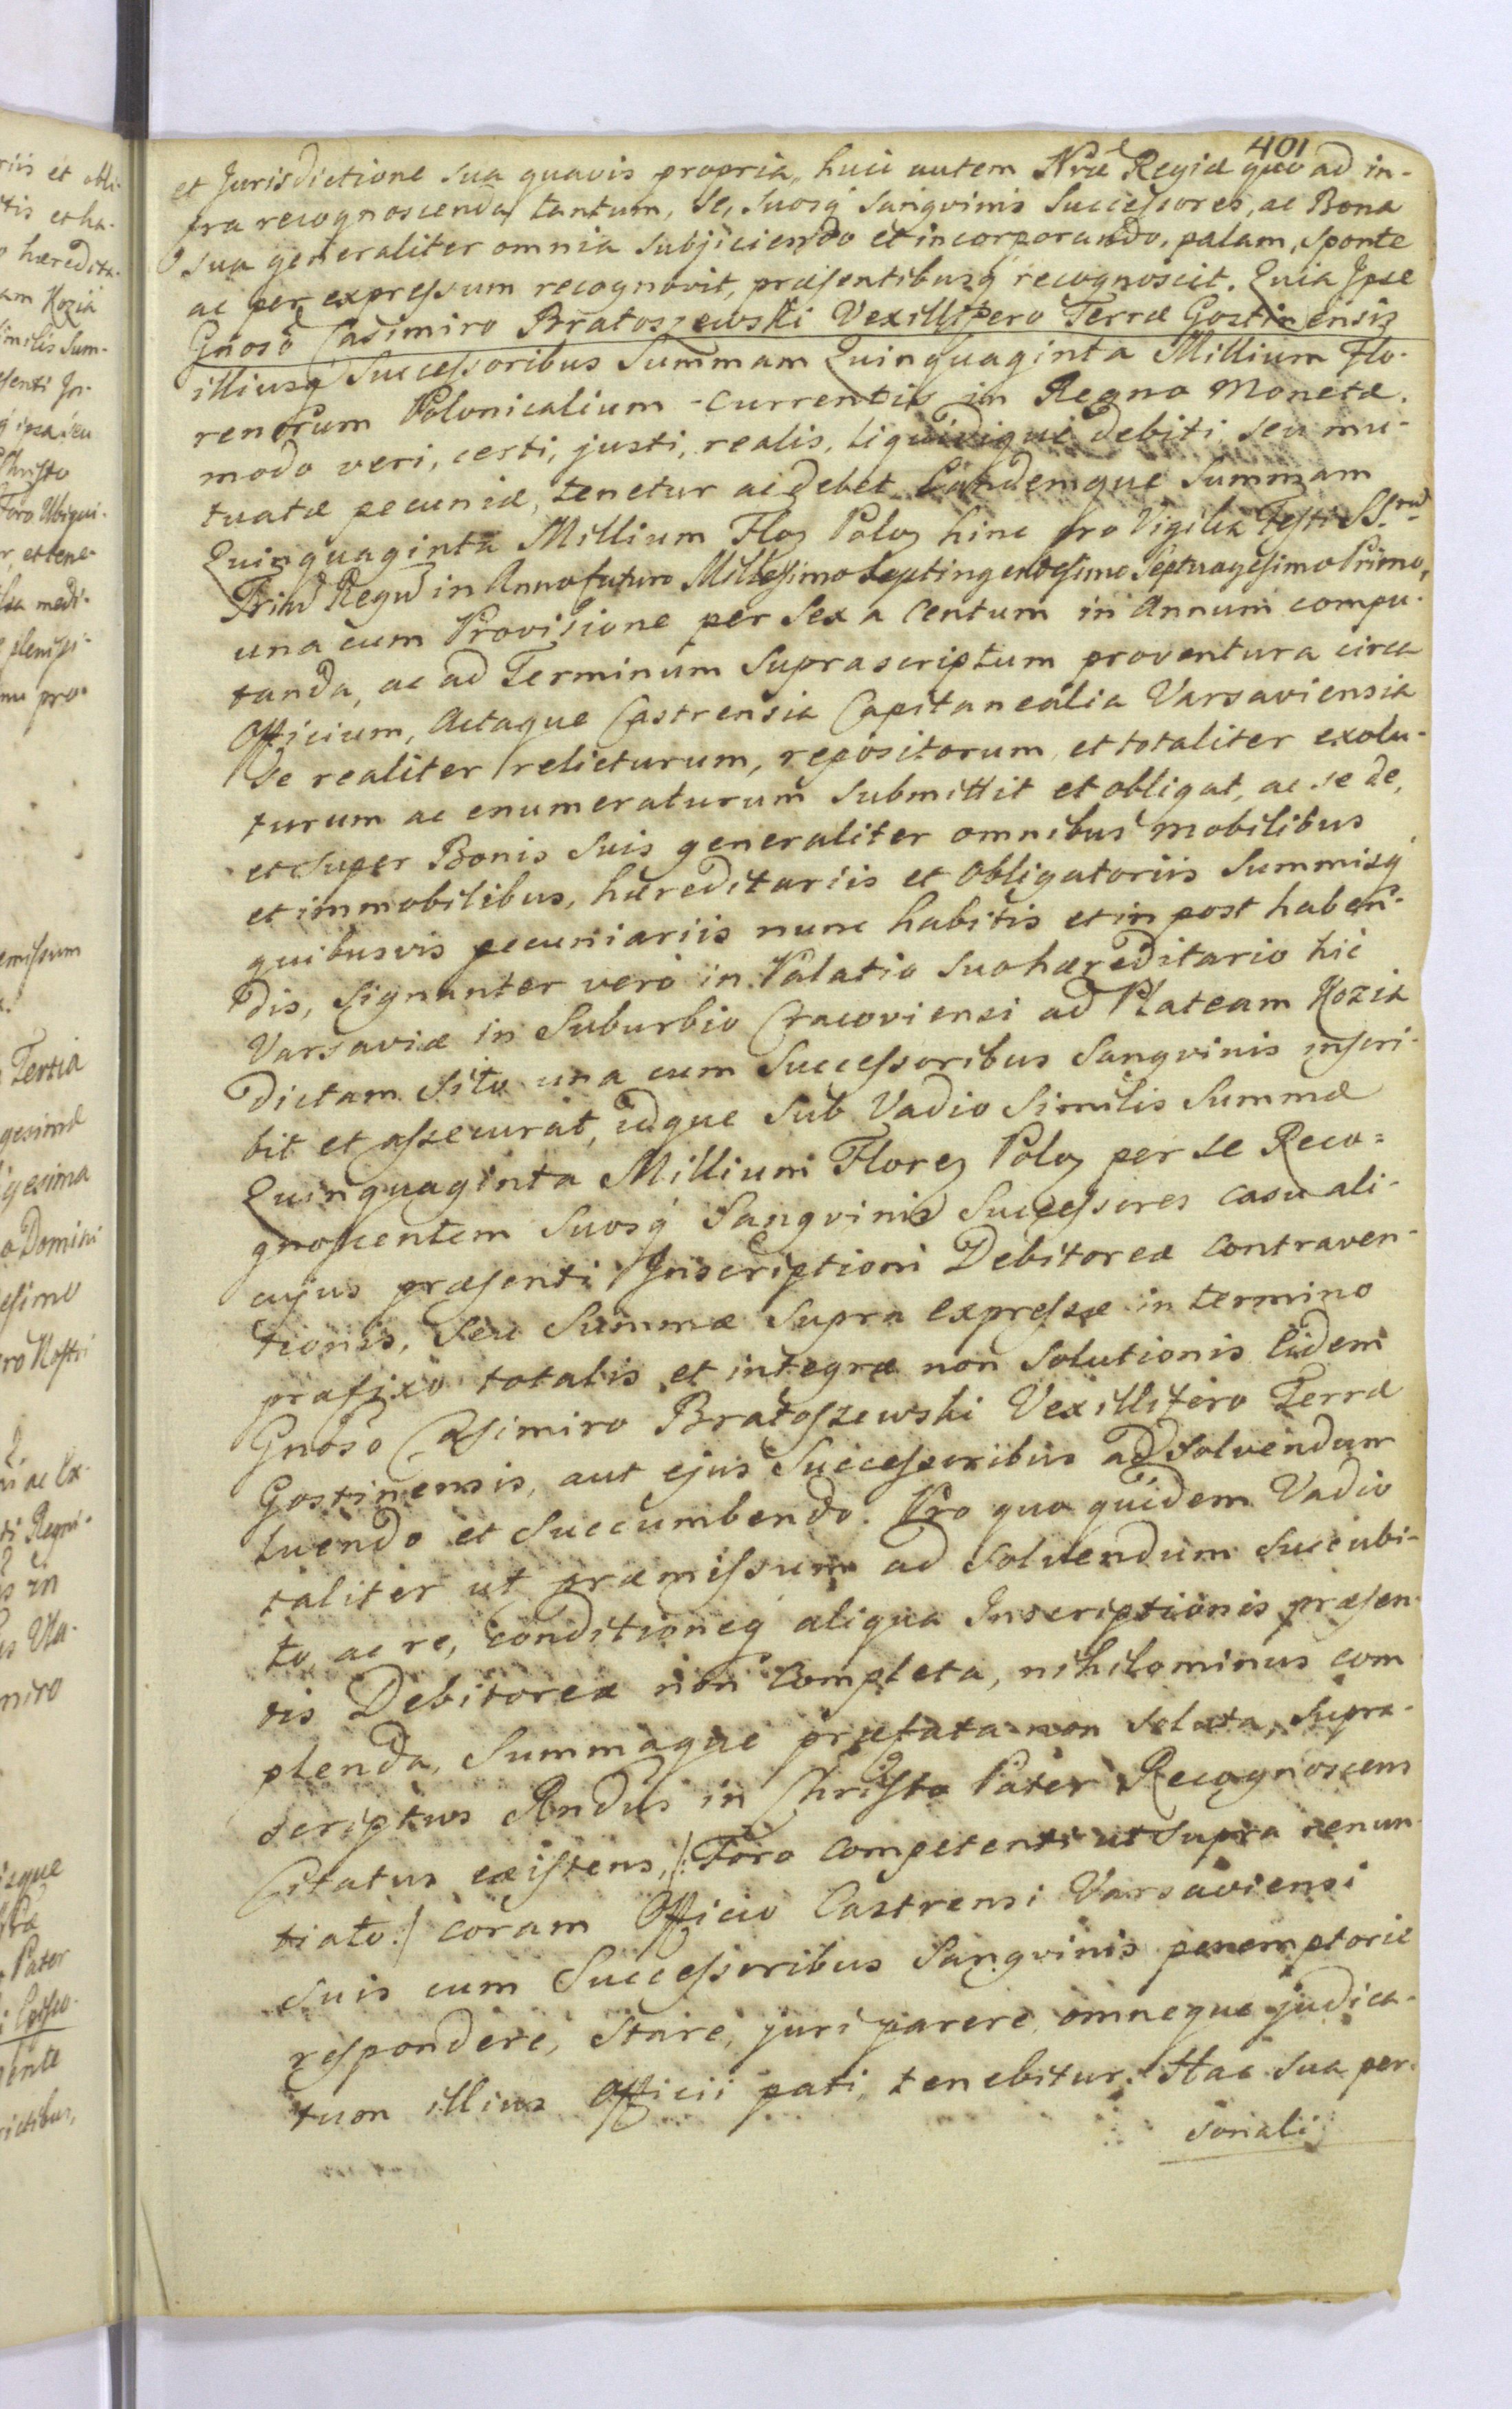 401
et Jurisdictione sua quavis propria, huic autem Nræ Regiæ quo ad in-
fra recognoscenda tantum, se, suosq́ Sangvinis Successores, ac Bona
sua generaliter omnia subjiciendo et incorporando, palam, sponte
ac per expressum recognovit, præsentibusq́ recognoscit. Quia Ipse
Gnoso Casimiro Bratoszewski Vexillifero Terræ Gostinensis
illiusq́ Successoribus Summam Quinquaginta Millium Flo-
renorum Polonicalium currentis in Regno Monetæ.
modo veri, certi, justi, realis, liquidique debiti, seu mu-
tuatæ pecuniæ, tenetur ac debet Eandemque Summam
Quinquaginta Millium Floꝝ Poloꝝ hinc pro Vigilia Festi SSrū
Triū Regū in Anno futuro Millesimo Septingentesimo Septuagesimo Primo,
una cum Provisione per Sex a Centum in Annum compu-
tanda, ac ad Terminum Suprascriptum proventura circa
Officium, Actaque Castrensia Capitanealia Varsaviensia
se realiter relicturum, repositorum, et totaliter exolu-
turum ac enumeraturum submittit et obligat, ac se de,
et super Bonis Suis generaliter omnibus mobilibus
et immobilibus, hæreditariis et obligatoriis Summisq́
quibusvis pecuniariis nunc habitis et in post haben-
dis, signanter verò in Palatio suo hæreditario hic
Varsaviæ in Suburbio Cracoviensi ad Plateam Kozia
dictam sito una cum Successoribus Sangvinis inscri-
bit et assecurat, idque sub Vadio Similis Summæ
Quinquaginta Millium Floreꝝ Poloꝝ per se Reco=
gnoscentem suosq́ Sangvinis Successores casu ali-
cujus præsenti Inscriptioni Debitoreæ contraven-
tionis, seu Summæ supra expressæ in termino
præfixo totalis et integræ non solutionis Eidem
Gnoso Casimiro Bratoszewski Vexillifero Terræ
Gostinensis, aut ejus Successoribus ad solvendum
luendo et succumbendo. Pro quo quidem Vadio
taliter ut præmissum ad solvendum succubi-
to, ac re, conditioneq́ aliqua Inscriptionis præsen-
tis Debitoreæ non completa, nihilominus com
plenda, Summaque præfata non soluta, supra-
scriptus Rndus in Christo Pater Recognoscens
Citatus existens, /: Foro competenti ut supra renun-
tiato :/ coram Officio Castrensi Varsaviensi
suis cum Successoribus Sangvinis peremptorie
respondere, stare, juri parere omneque judica-
tum illius Officii pati, tenebitur. Hac sua per-
sonali